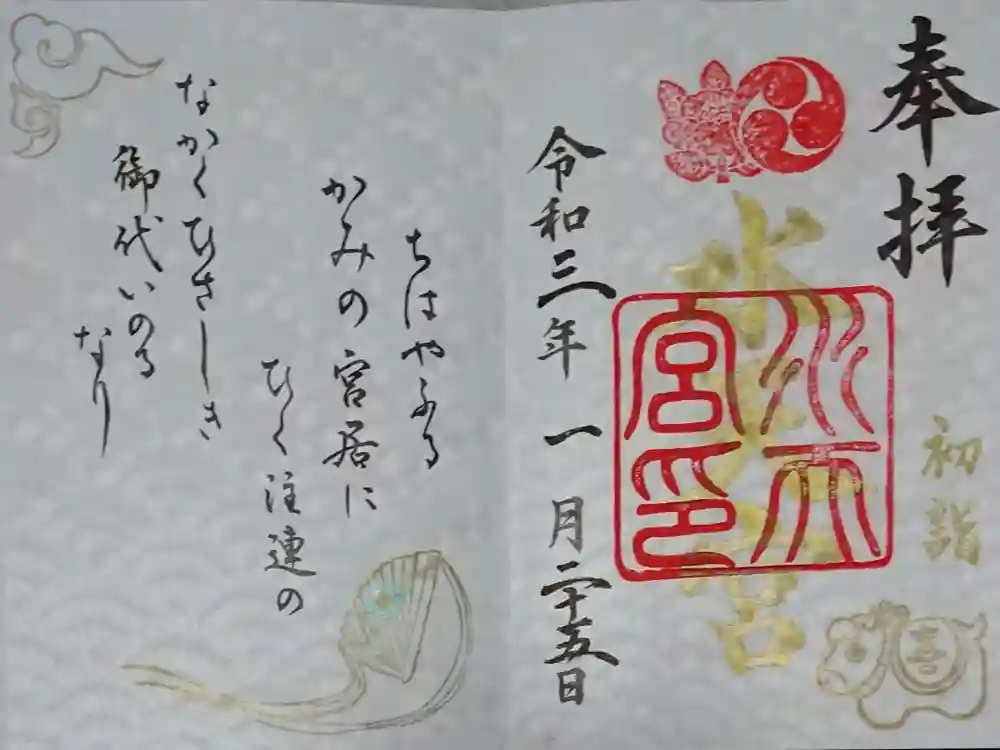 奉拝
初詣
水天宮
水天宮印
喜
令和三年 一月二十五日
ちはやふる
かみの宮居に
ひく注連の
なかくひさしき
御代いのる
なり